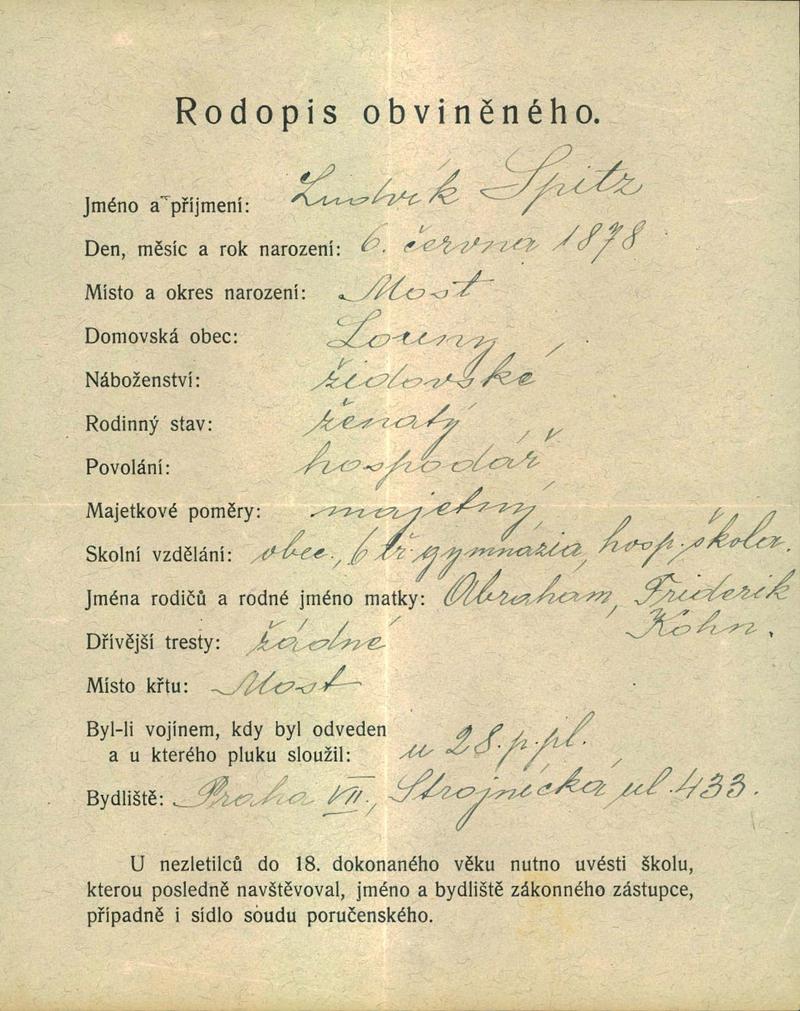 Rodopis obviněného.
Jméno a příjmení: Ludvík Spitz
Den, měsíc a rok narození: 6. června 1878
Místo a okres narození: Most
Domovská obec: Louny
Náboženství: židovské
Rodinný stav: ženatý
Povolání: hospodář
Majetkové poměry: majetný
Školní vzdělání: obec., 6 tř. gymnázia, hosp. škola.
Jména rodičů a rodné jméno matky: Abraham, Friderik
Kohn.
Dřívější tresty: žádné
Místo křtu: Most
Byl-li vojínem, kdy byl odveden
a u kterého pluku sloužil: u 28. p. pl.
Bydliště: Praha VII., Strojnická ul. 433.
U nezletilců do 18. dokonaného věku nutno uvésti školu,
kterou posledně navštěvoval, jméno a bydliště zákonného zástupce,
případně i sídlo soudu poručenského.